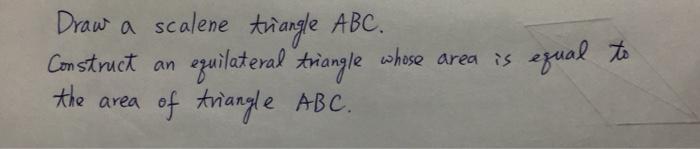 Draw a scalene triangle ABC.
Construct an equilateral triangle whose area is equal to
the area of triangle ABC.